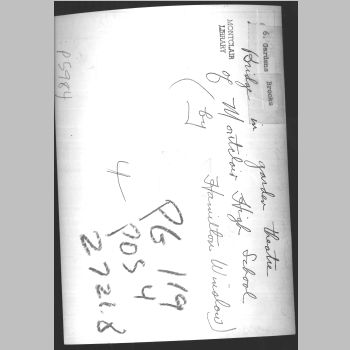 6. Gardens Brooks
MONTCLAIR
LIBRARY
Bridge in garden theatre
of Montclair High School
(by Hamilton Winslow)
PG 119
POS 4
2721.8
4
P5984